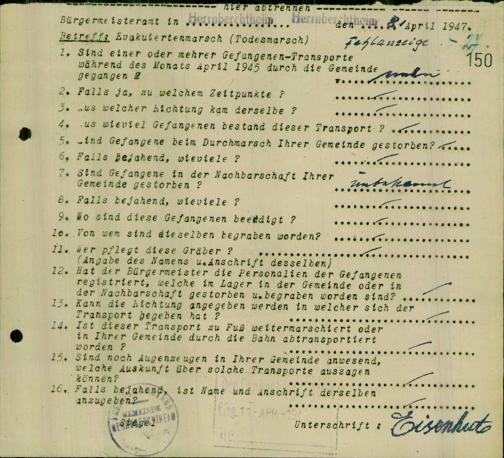 hier abtrennen
Bürgermeisteramt in Herrnberchtheim Herrnberchtheim den 8. April 1947.
Betreff: Evakuiertenmarsch (Todesmarsch) Fehlanzeige
150
1. Sind einer oder mehrer Gefangenen-Transporte
während des Monats April 1945 durch die Gemeinde
gegangen ? nein
2. Falls ja, zu welchem Zeitpunkte ?
3. .us welcher Richtung kam derselbe ?
4. .us wieviel Gefangenen bestand dieser Transport ?
5. .ind Gefangene beim Durchmarsch Ihrer Gemeinde gestorben?
6. Falls bejahend, wieviele ?
7. Sind Gefangene in der Nachbarschaft Ihrer
Gemeinde gestorben ? unbekannt
8. Falls bejahend, wieviele ?
9. Wo sind diese Gefangenen beerdigt ?
10. Von wem sind dieselben begraben worden?
11. Wer pflegt diese Gräber ?
(Angabe des Namens u.Anschrift desselben)
12. Hat der Bürgermeister die Personalien der Gefangenen
registriert, welche im Lager in der Gemeinde oder in
der Nachbarschaft gestorben u.begraben worden sind?
13. Kann die Richtung angegeben werden in welcher sich der
Transport begeben hat ?
14. Ist dieser Transport zu Fuß weitermarschiert oder
in Ihrer Gemeinde durch die Bahn abtransportiert
worden ?
15. Sind noch Augenzeugen in Ihrer Gemeinde anwesend,
welche Auskunft über solche Transporte aussagen
können?
16. Falls bejahend, ist Name und Anschrift derselben
anzugeben?
GEMEINDE
Siegel
Unterschrift : Eisenhut